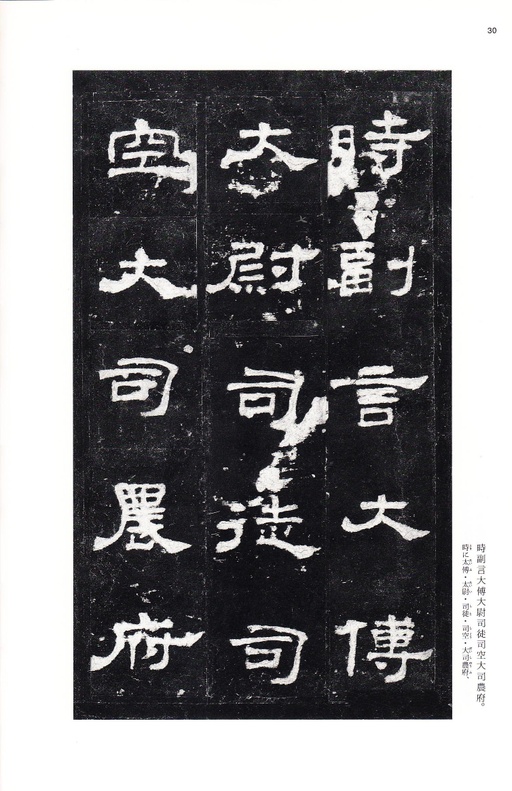 30
時副言大傅
太尉司徒司
空大司農府
時副言大傅大尉司徒司空大司農府。
時に太傅・太尉・司徒・司空・大司農府、